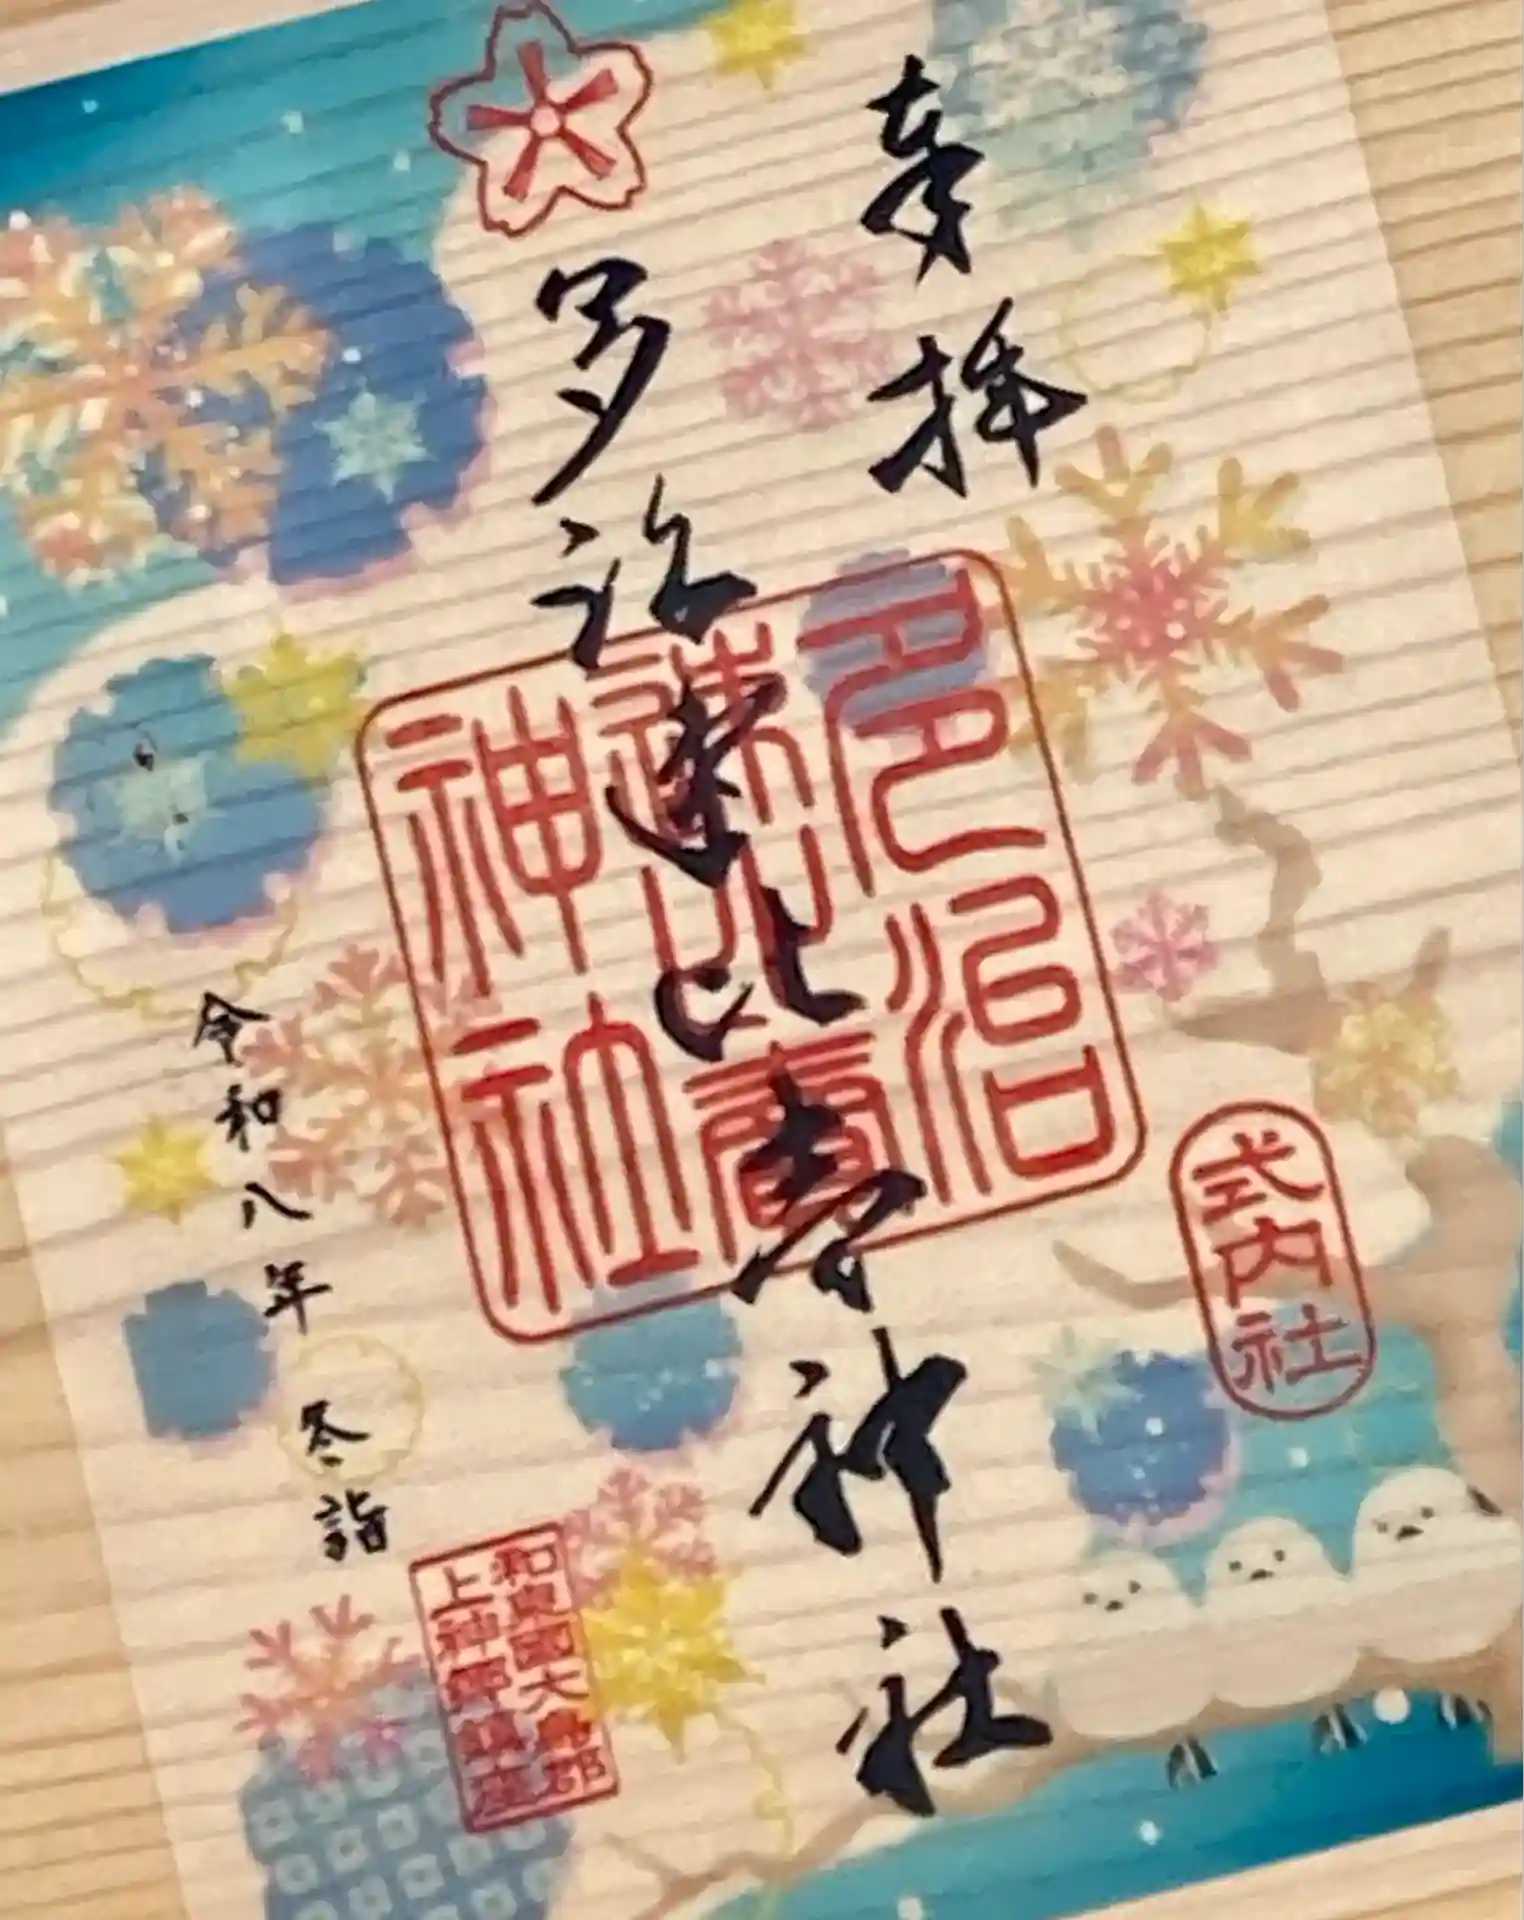 奉拝
式内社
多治速比売神社
多治
速比賣
神社
令和八年 冬詣
和泉國大鳥郡
上神郷鎮座